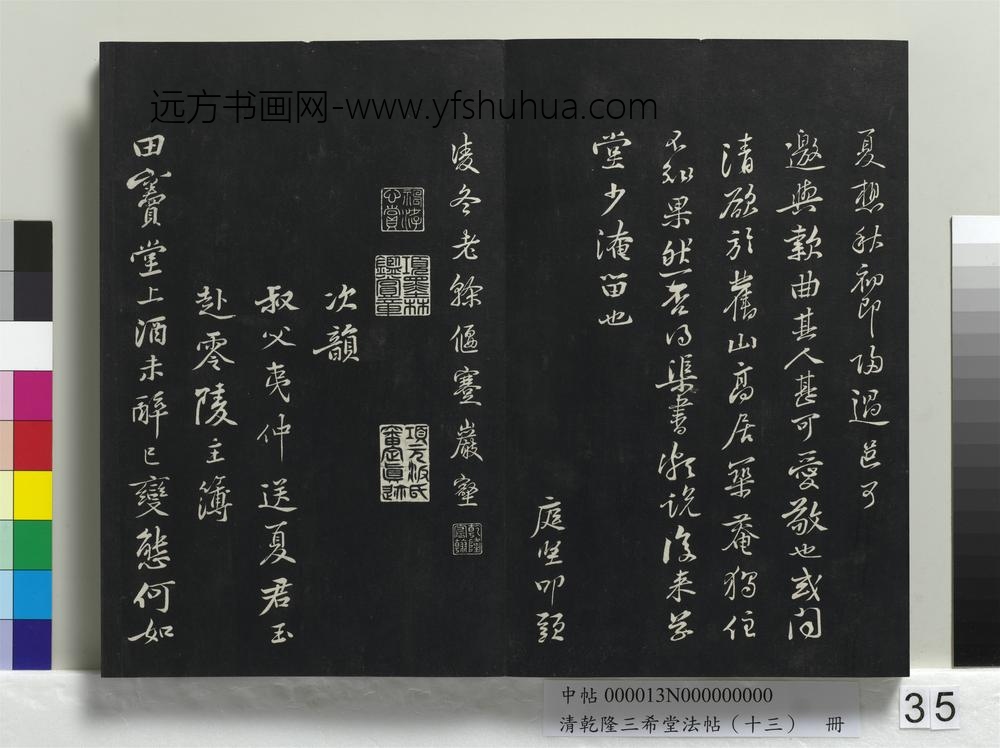 远方书画网-www.yfshuhua.com
夏想秋初即归過邑可
邀與款曲其人甚可愛敬也或问
清欲於舊山高居築菴獨住
不知果然否得渠書
堂少淹留也
庭坚叩頭
凌冬老榦偃蹇巖壑
項墨林鑑賞章
項元汴氏審定真迹
次韻
叔父夷仲送夏君玉
赴零陵主簿
田竇堂上酒未醉已變態何如
中帖 000013N000000000
清乾隆三希堂法帖（十三） 冊
35